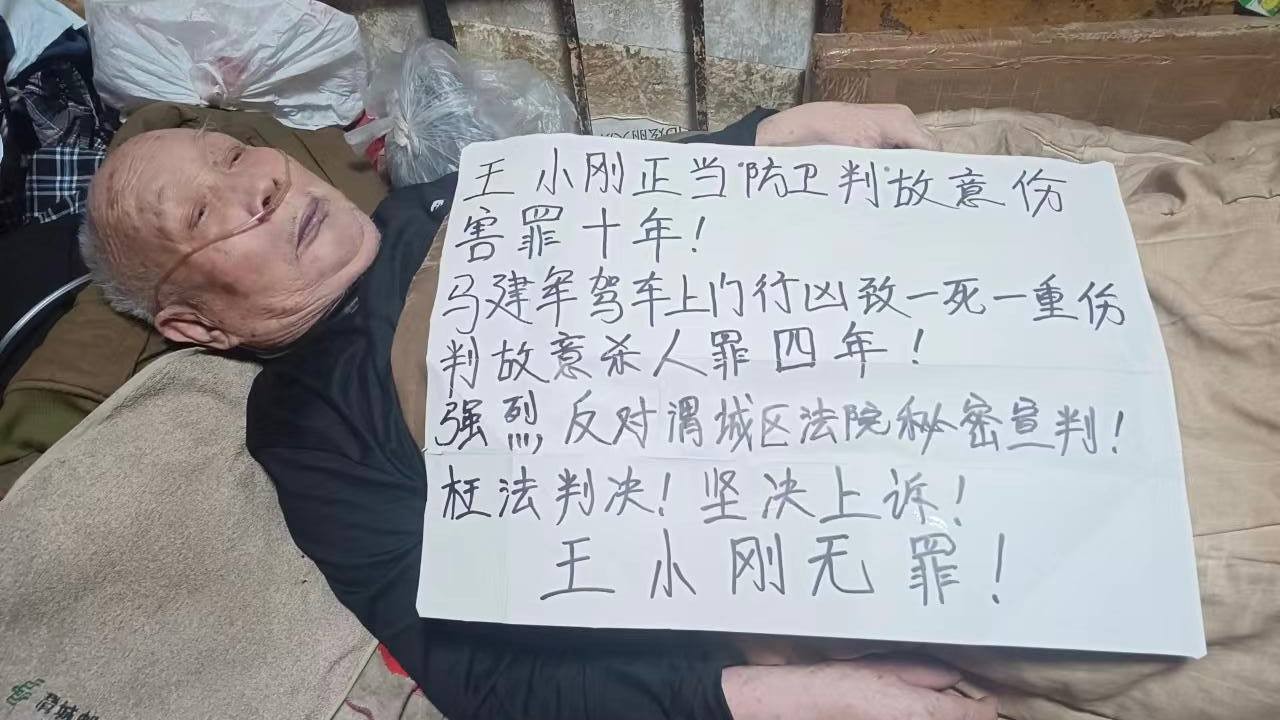 王小刚正当"防卫判"故意伤
害罪十年！
马建军驾车上门行凶致一死一重伤
判故意杀人罪四年！
强烈反对渭城区法院秘密宣判！
枉法判决！坚决上诉！
王小刚无罪！